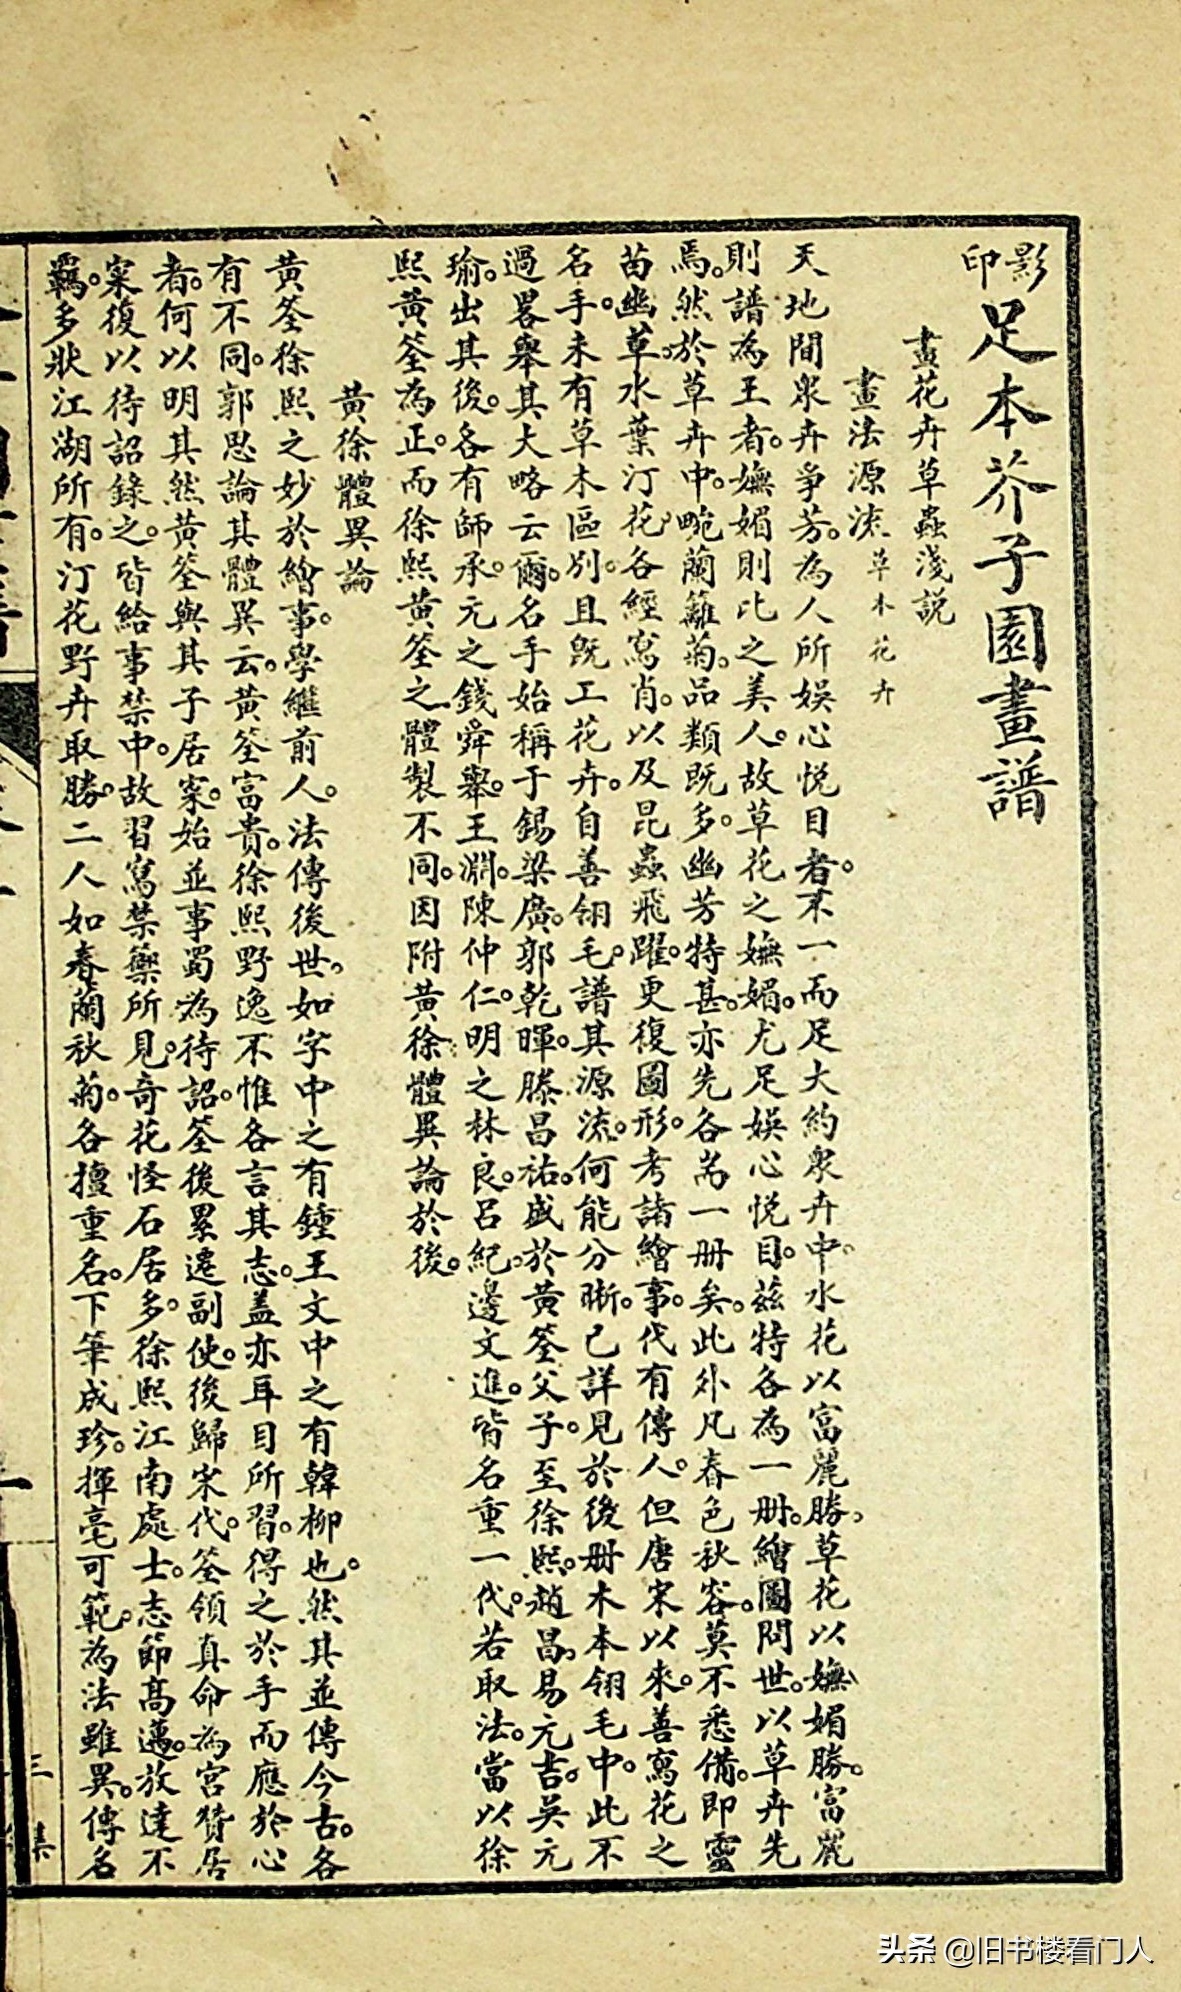 影印足本芥子園畫譜
畫花卉草蟲淺説
畫法源流 草木花卉
天地間衆卉爭芳。為人所娱心悦目者。不一而足大約衆卉中。水花以富麗勝。草花以嫵媚勝。富麗
則譜為王者。嫵媚則比之美人。故草花之嫵媚。尤足娱心悦目。兹特各為一册。繪圖問世。以草卉先
焉。然於草卉中。畹蘭籬菊。品類既多。幽芳特甚。亦先各耑一册矣。此外凡春色秋容。莫不悉備。即靈
苗幽草。水葉汀花。各經寫肖。以及昆蟲飛躍。更復圖形。考諸繪事。代有傳人。但唐宋以來。善寫花之
名手。未有草木區别。且既工花卉。自善翎毛。譜其源流。何能分晰。已詳見於後册木本翎毛中。此不
過畧舉其大略云爾。名手始稱于錫梁廣。郭乾暉。滕昌祐。盛於黄筌父子。至徐熙。趙昌。易元吉。吴元
瑜。出其後。各有師承。元之錢舜舉。王淵。陳仲仁。明之林良。吕紀。邊文進。皆名重一代。若取法。當以徐
熙黄筌為正。而徐熙黄筌之體製不同。因附黄徐體異論於後。
黄徐體異論
黄筌徐熙之妙於繪事。學繼前人。法傳後世。如字中之有鍾王文中之有韓柳也。然其並傳今古。各
有不同。郭思論其體異云。黄筌富貴。徐熙野逸不惟各言其志。盖亦耳目所習。得之於手而應於心
者。何以明其然黄筌與其子居寀。始並事蜀為待詔。筌後累遷副使。後歸宋代。筌領真命為宫贊居
寀復以待詔錄之。皆給事禁中。故習寫禁籞所見。奇花怪石居多。徐熙江南處士。志節高邁。放達不
羈。多狀江湖所有。汀花野卉取勝。二人如春蘭秋菊。各擅重名。下筆成珍。揮毫可範。為法雖異。傳名
三集
头条 @旧书楼看门人